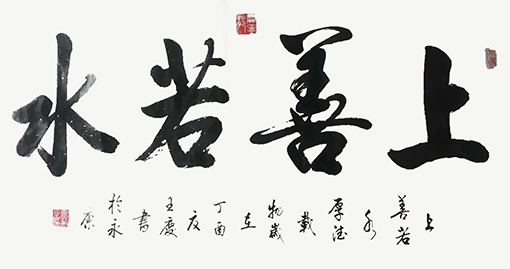 上善若水
上
善若
水
厚德
載
物歲
在
丁酉
王慶
書
於永
康